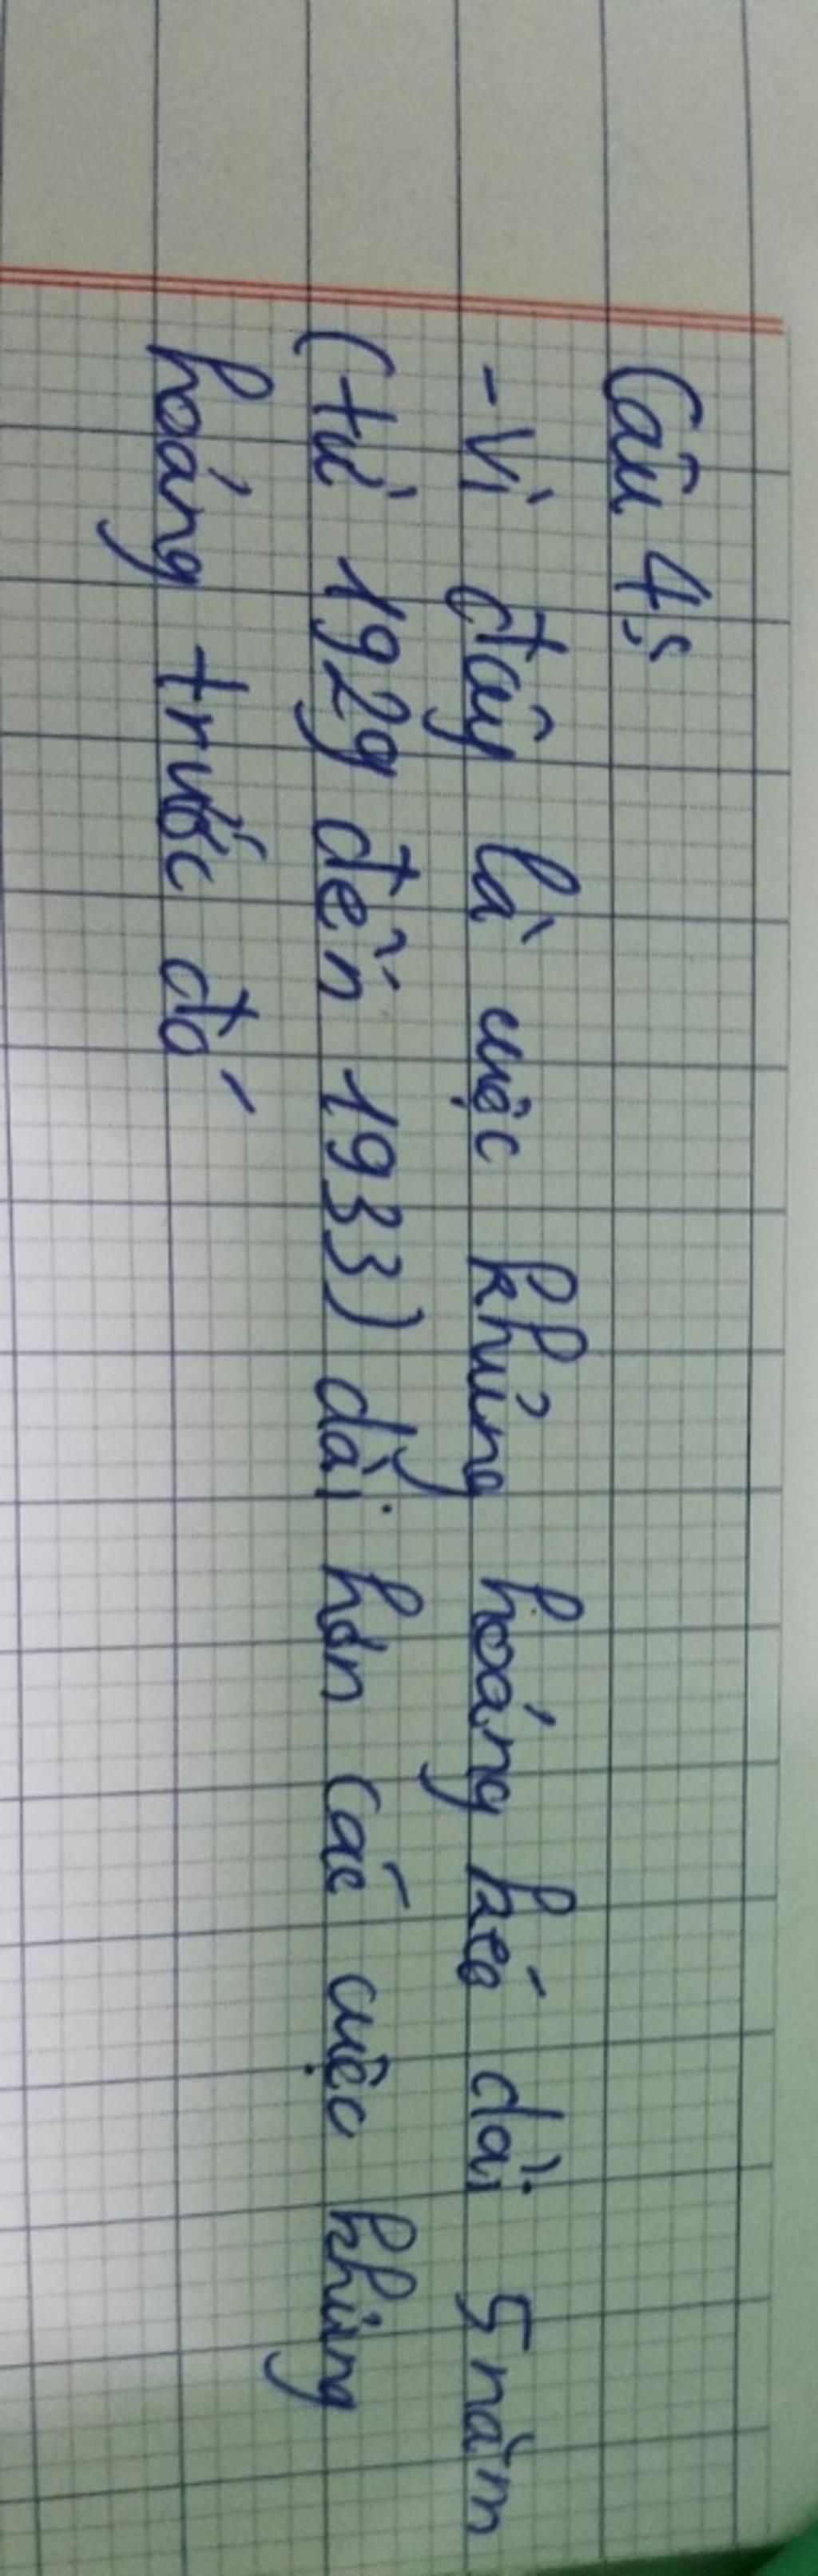 Câu 4:
- Vì đây là cuộc khủng hoảng kéo dài 5 năm
(từ 1929 đến 1933) dài hơn các cuộc khủng
hoảng trước đó